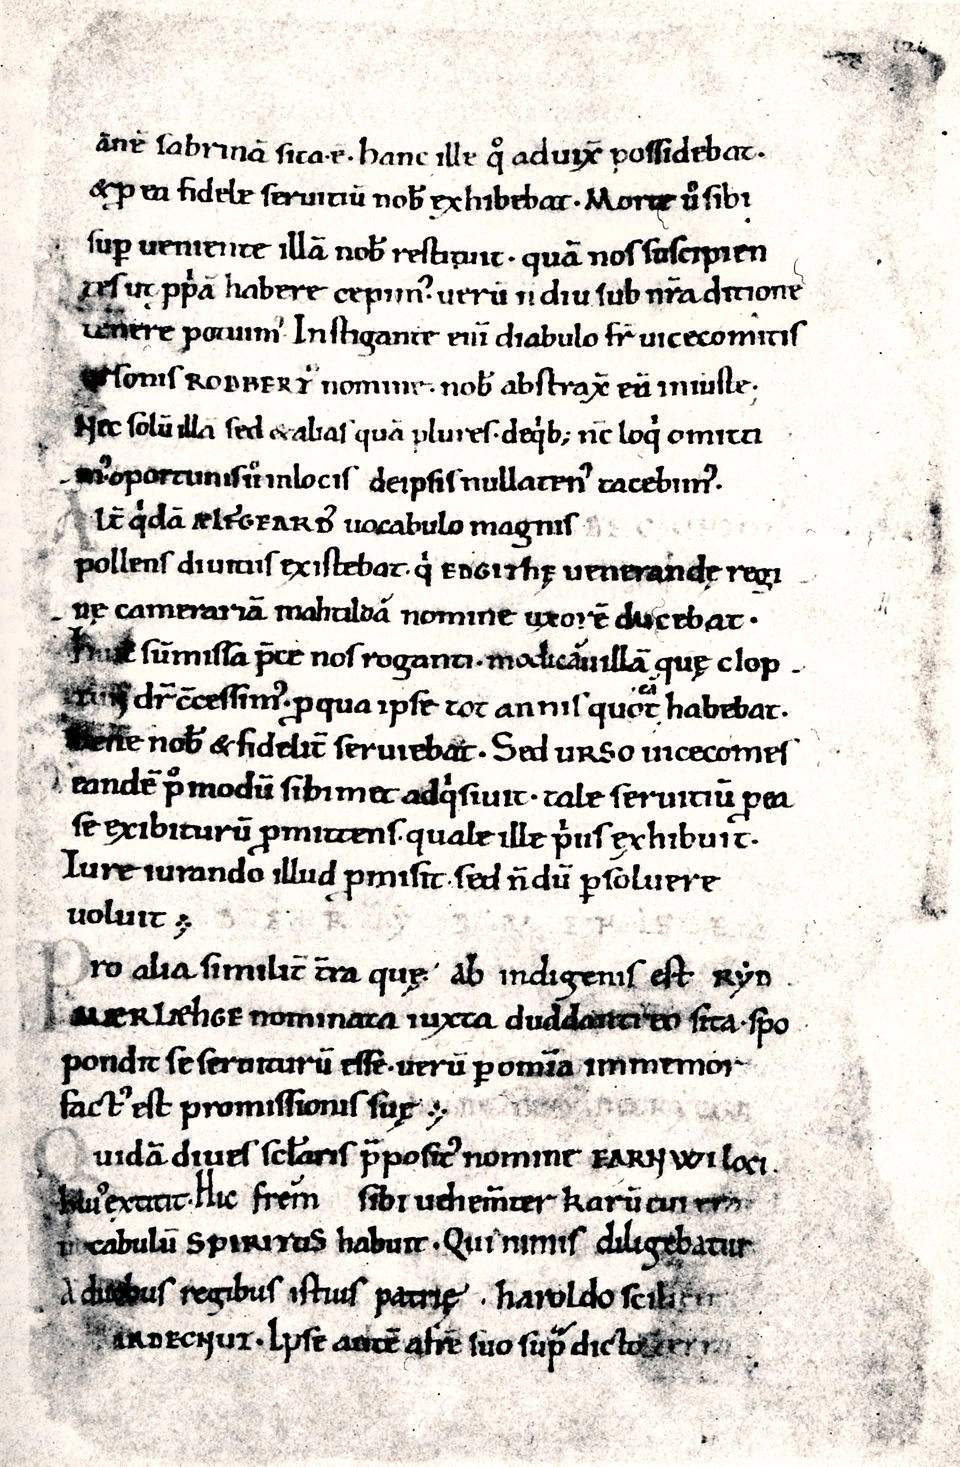 ānē sabrinā sita·ē· hanc ille qͦ aduix̄ possidebat·
& ꝑ ea fidele seruitiū nob̄ exhibebat· Morte ů sibi
suꝑ ueniente illā nob̄ restituit· quā nos suscipien
tes ut ꝓpͥā habere cepim᾽· uerū n̄ diu sub nr̄a ditione
tenere potuim᾽ Instigante eni̅ diabulo fr̄ uicecomitis
sonis RODBERT᾽ nomine· nob̄ abstrax̄ eū iniuste·
Nec solū illā sed & alias quā plures· deqͥb; nc̄ loqͥ omitti
m᾽· oportunis ů in locis de ipsis nullaten᾽ tacebim᾽·
Alt̄ qͥdā ÆLFGEARD᾽ uocabulo magnis
pollens diuitiis existebat· qͥ EDGIThę uenerandę regi
nę camerariā mahtildā nomine uxorē ducebat·
Huic sūmissa p̄ce nos roganti· modicā uillā quę clop
dr̄ c̄cessim᾽· ꝓ qua ipse tot annis quot eā habebat·
Bene nob̄ & fidelit̄ seruiebat· Sed URSO uicecomes
eandē pͦ modū sibimet adqͥsiuit· tale seruitiū ꝓ ea
se exibiturū ꝓmittens· quale ille pͥus exhibuit·
Iure iurando illud ꝓmisit· sed n̄ dū ꝑsoluere
uoluit
Pro alia similit̄ t̄ra quę ab indigenis est RẎD
MÆRLÆhGE nominata iuxta duddantreo sita· spo
pondit se seruiturū esse· uerū ꝑ om̄ia immemor
fact᾽ est promissionis suę
Quidā diues scl̄aris p̄posit᾽ nomine EARNWI loci
hui᾽ extitit· Hic frem̄ sibi uehem̄ter karū cui erat
uocabulū SPIRITUS habuit· Qui nimis diligebatur
A duobus regibus istius patrię· haroldo scilicet
hARDECHUT· Ipse autē afr̄e suo suꝑdicto